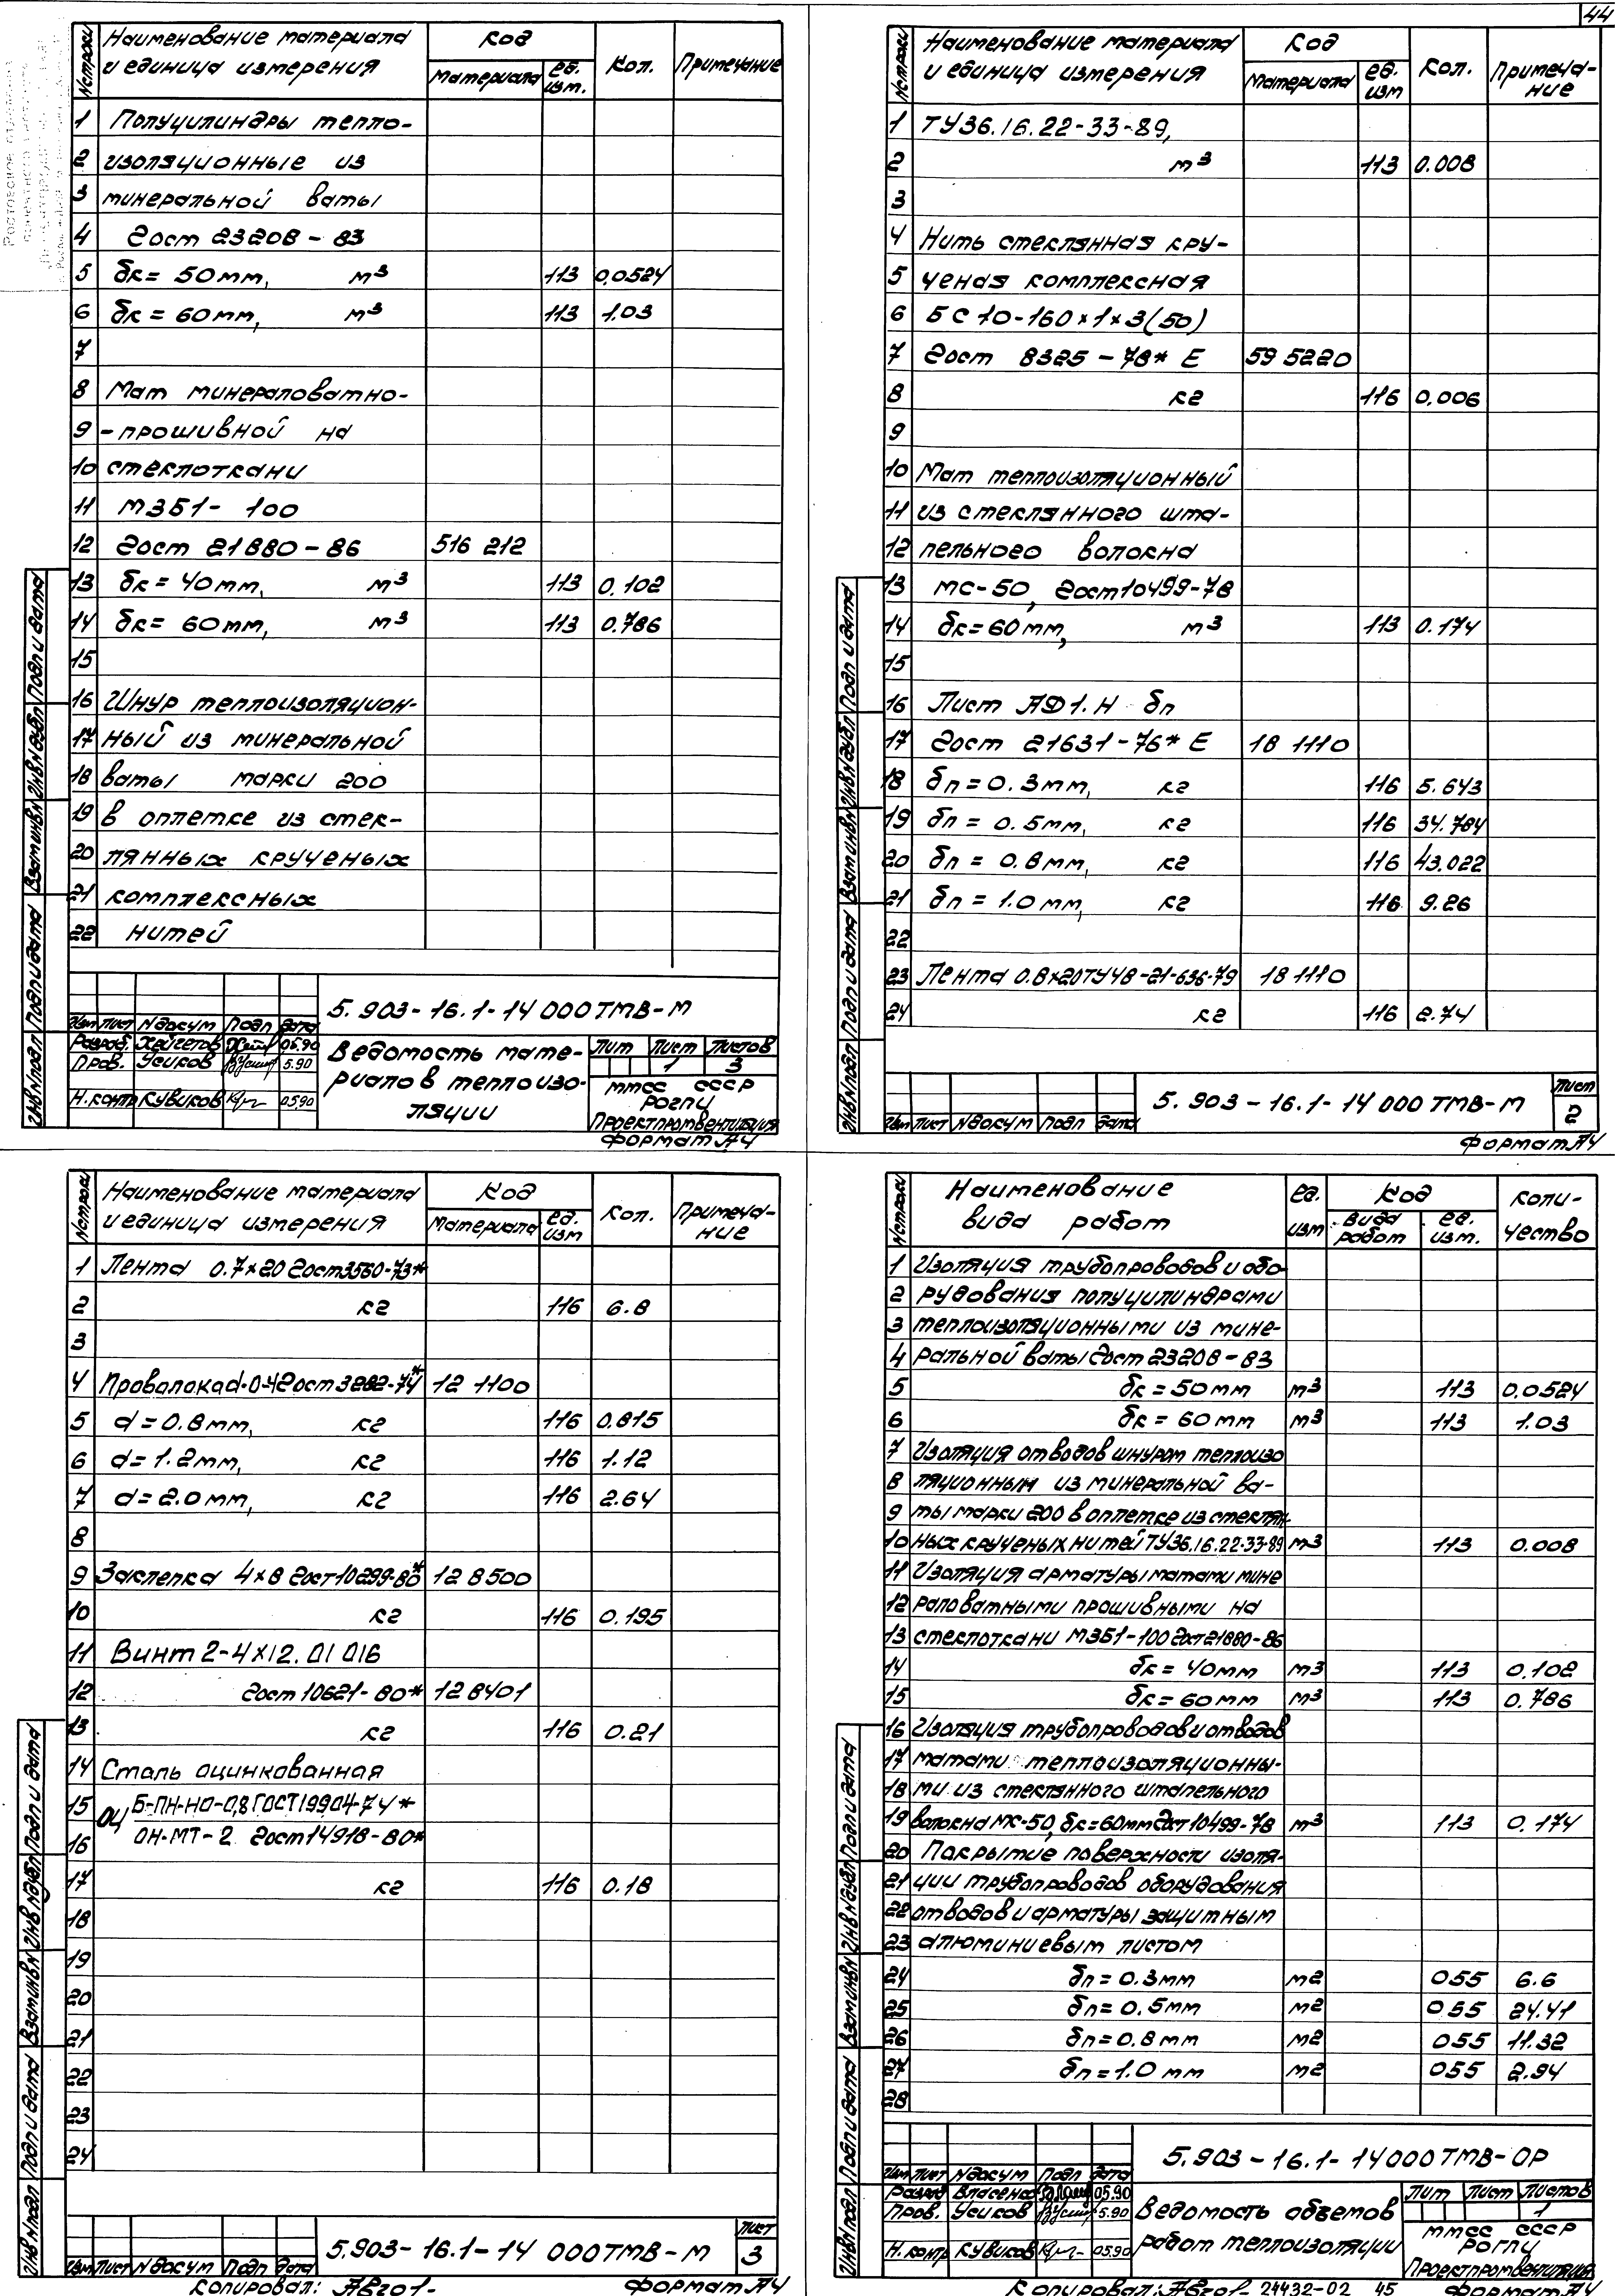 44
№ строки Наименование материала и единица измерения Код материала ед. изм. Кол. Примечание
1 Полуцилиндры тепло-
2 изоляционные из
3 минеральной ваты
4 Гост 23208-83
5 δк = 50мм, м³ 113 0,0524
6 δк = 60мм, м³ 113 1.03
7
8 Мат минераловатно-
9 -прошивной на
10 стеклоткани
11 МЗБ1-100
12 Гост 21880-86 516 212
13 δк = 40мм, м³ 113 0.102
14 δк = 60мм, м³ 113 0.786
15
16 Шнур теплоизоляцион-
17 ный из минеральной
18 ваты марки 200
19 в оплетке из стек-
20 лянных крученых
21 комплексных
22 нитей
5.903-16.1-14 000ТМВ-М
Изм Лист N докум Подп Дата
Разраб. Хейгетов 05.90
Пров. Усиков 5.90
Н.контр Кувиков 05.90
Ведомость мате-
риалов теплоизо-
ляции
Лит Лист Листов
1 3
ММСС СССР
РОГПИ
Проектпромвентиляция
Формат А4
Инв N подл Подп и дата Взам инв N Инв N дубл Подп и дата
№ строки Наименование материала и единица измерения Код материала ед. изм Кол. Примеча-ние
1 ТУ36.16.22-33-89,
2 м³ 113 0.008
3
4 Нить стеклянная кру-
5 ченая комплексная
6 БС 10-160×1×3(50)
7 Гост 8325-78* Е 59 5220
8 кг 116 0,006
9
10 Мат теплоизоляционный
11 из стеклянного шта-
12 пельного волокна
13 МС-50, Гост10499-78
14 δк=60мм, м³ 113 0.174
15
16 Лист АД1.Н δп
17 Гост 21631-76* Е 18 1110
18 δп = 0.3мм, кг 116 5.643
19 δп = 0.5мм, кг 116 34.784
20 δп = 0.8мм, кг 116 43.022
21 δп = 1.0мм, кг 116 9.26
22
23 Лента 0.8×20ТУ48-21-636-79 18 1110
24 кг 116 2.74
Изм Лист N докум Подп Дата
5.903-16.1-14 000ТМВ-М
Лист
2
Формат А4
Инв N подл Подп и дата Взам инв N Инв N дубл Подп и дата
№ строки Наименование материала и единица измерения Код материала ед. изм Кол. Примеча-ние
1 Лента 0.7×20 Гост3560-73*
2 кг 116 6.8
3
4 Проволока d-0-4Гост 3282-74* 12 1100
5 d = 0.8мм, кг 116 0.815
6 d = 1.2мм, кг 116 1.12
7 d = 2.0мм, кг 116 2.64
8
9 Заклепка 4×8 Гост10299-80* 12 8500
10 кг 116 0.195
11 Винт 2-4×12.01 016
12 Гост 10621-80* 12 8401
13 кг 116 0.21
14 Сталь оцинкованная
15 ОЦ Б-ПН-НО-0,8 ГОСТ19904-74*
16 ОН-МТ-2 Гост14918-80*
17 кг 116 0.18
18
19
20
21
22
23
24
Изм Лист N докум Подп Дата
5.903-16.1-14 000ТМВ-М
Лист
3
Копировал:
Формат А4
Инв N подл Подп и дата Взам инв N Инв N дубл Подп и дата
№ строки Наименование вида работ ед. изм Код вида работ ед. изм. Коли-чество
1 Изоляция трубопроводов и обо-
2 рудования полуцилиндрами
3 теплоизоляционными из мине-
4 ральной ваты Гост 23208-83
5 δк = 50мм м³ 113 0.0524
6 δк = 60мм м³ 113 1.03
7 Изоляция отводов шнуром теплоизо
8 ляционным из минеральной ва-
9 ты марки 200 в оплетке из стеклян-
10 ных крученых нитей ТУ36.16.22-33-89 м³ 113 0.008
11 Изоляция арматуры матами мине
12 раловатными прошивными на
13 стеклоткани МЗБ1-100 Гост21880-86
14 δк = 40мм м³ 113 0.102
15 δк = 60мм м³ 113 0.786
16 Изоляция трубопроводов и отводов
17 матами теплоизоляционны-
18 ми из стеклянного штапельного
19 волокна МС-50, δк=60мм Гост 10499-78 м³ 113 0.174
20 Покрытие поверхности изоля-
21 ции трубопроводов оборудования
22 отводов и арматуры защитным
23 алюминиевым листом
24 δп = 0.3мм м2 055 6.6
25 δп = 0.5мм м2 055 24.41
26 δп = 0.8мм м2 055 11.32
27 δп = 1.0 мм м2 055 2.94
28
5.903-16.1-14000ТМВ-ОР
Изм Лист N докум Подп Дата
Разраб Власенко 05.90
Пров. Усиков 5.90
Н.контр Кувиков 05.90
Ведомость объемов
работ теплоизоляции
Лит Лист Листов
1
ММСС СССР
РОГПИ
Проектпромвентиляция
Копировал: 24432-02 45 Формат А4
Инв N подл Подп и дата Взам инв N Инв N дубл Подп и дата